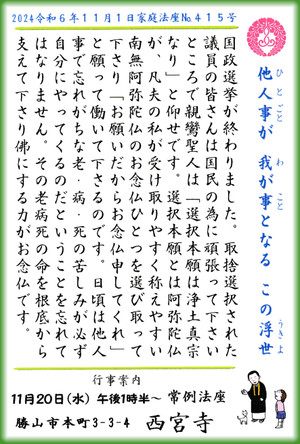 2024令和６年１１月１日家庭法座№４１５号
他人事が　我が事となる　この浮世
ひとごと　わ　こと　うきよ
国政選挙が終わりました。取捨選択された
議員の皆さんは国民の為に頑張って下さい
ところで親鸞聖人は「選択本願は浄土真宗
なり」と仰せです。選択本願とは阿弥陀仏
が、凡夫の私が受け取りやすく称えやすい
南無阿弥陀仏のお念仏ひとつを選び取って
下さり「お願いだからお念仏申してくれ」
と願って働いて下さるのです。日頃は他人
事で忘れがちな老・病・死の苦しみが必ず
自分にやってくるのだということを忘れて
はなりません。その老病死の命を根底から
支えて下さり佛にする力がお念仏です。
行事案内
11月20日(水)　午後1時半～　常例法座
勝山市本町3-3-4　西宮寺